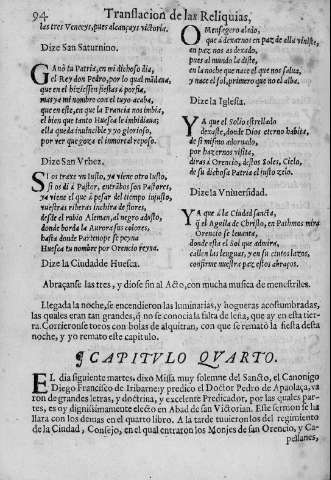 94 Translacion de las Reliquias,
las tres Venceys, pues alcançays victoria.
Dize San Saturnino.
GAnò tu Patria, en mi dichoso dia,
el Rey don Pedro, por lo qual mãdaua,
que en el hiziessen fiestas à porfia,
mas ya mi nombre con el tuyo acaba,
que en este, en que la Francia nos imbia,
el bien que tanto Huesca le imbidiaua;
ella queda inuincible y yo glorioso,
por ver que goza el inmortal reposo.
Dize San Vrbez.
SI os traxe vn Iusto, ya viene otro Iusto,
si os di à Pastor, entrãbos son Pastores,
ya viene el que à pesar del tiempo injusto,
vuestras riberas inchira de flores,
desde el rubio Aleman, al negro adusto,
donde borda la Aurora sus colores,
hasta donde Partenope se peyna
Huesca tu nombre por Orencio reyna.
Dize la Ciudad de Huesca.
O Mensegero alado,
que à dexarnos en paz de ella viniste,
en paz nos as dexado,
pues al mundo la diste,
en la noche que nace el que nos salua,
y nace el sol, primero que no el alba.
Dize la Iglesia.
YA que el Solio estrellado
dexaste, donde Dios eterno habita,
de si mismo adornado,
por hazernos visita,
diras à Orencio, destos Soles, Cielo,
de su dichosa Patria el justo zelo.
Dize la Vniuersidad.
YA que à la Ciudad sancta,
q̃ el Aguila de Christo, en Pathmos mira
Orencio se leuanta,
donde esta el Sol que admira,
callen las lenguas, y en su cintos lazos,
confirme nuestra paz estos abraços.
Abraçanse las tres, y diose fin al Acto, con mucha musica de menestriles.
Llegada la noche, se encendieron las luminarias, y hogueras acostumbradas,
las quales eran tan grandes, q̃ no se conocia la falta de leña, que ay en esta tierra.
Corrieronse toros con bolas de alquitran, con que se remató la fiesta desta
noche, y yo remato este capitulo.
¶ CAPITVLO QVARTO.
EL dia siguiente martes, dixo Missa muy solemne del Sancto, el Canonigo
Diego Francisco de Iribarne: y predico el Doctor Pedro de Apaolaça, varon
de grandes letras, y doctrina, y excelente Predicador, por las quales partes,
es oy dignissimamente electo en Abad de san Victorian. Este sermon se hallara
con los demas en el quarto libro. A la tarde tuuieron los del regimiento
de la Ciudad, Consejo, en el qual entraron los Monjes de san Orencio, y Capellanes,